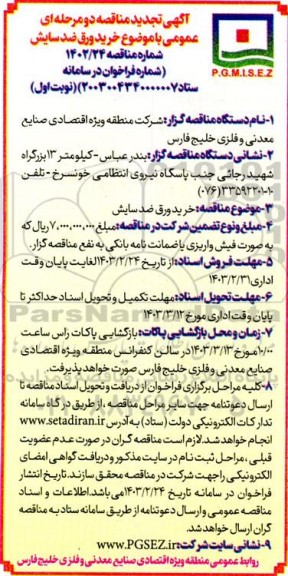 آگهی تجدید مناقصه دو مرحله ای
عمومی با موضوع خرید ورق ضد سایش
شماره مناقصه ۱۴۰۲/۲۴
(شماره فراخوان در سامانه
ستاد ۲۰۰۳۰۰۴۳۴۰۰۰۰۰۰۷) (نوبت اول)
P.G.M.I.S.E.Z
۱-نام دستگاه مناقصه گزار: شرکت منطقه ویژه اقتصادی صنایع
معدنی و فلزی خلیج فارس
۲-نشانی دستگاه مناقصه گزار: بندرعباس-کیلومتر ۱۳ بزرگراه
شهید رجائی جنب پاسگاه نیروی انتظامی خونسرخ-تلفن
۱۰-۳۳۵۹۲۲۰۱ (۰۷۶)
۳-موضوع مناقصه: خرید ورق ضد سایش
۴-مبلغ و نوع تضمین شرکت در مناقصه: مبلغ ۷،۰۰۰،۰۰۰،۰۰۰ ریال که
به صورت فیش واریزی یا ضمانت نامه بانکی به نفع مناقصه گزار.
۵-مهلت فروش اسناد: از تاریخ ۱۴۰۳/۲/۲۴ لغایت پایان وقت
اداری ۱۴۰۳/۲/۳۱
۶-مهلت تحویل اسناد: مهلت تکمیل و تحویل اسناد حداکثر تا
پایان وقت اداری مورخ ۱۴۰۳/۳/۱۲
۷-زمان و محل بازگشایی پاکات: بازگشایی پاکات راس ساعت
۱۰/۰۰ مورخ ۱۴۰۳/۳/۱۳ در سالن کنفرانس منطقه ویژه اقتصادی
صنایع معدنی و فلزی خلیج فارس صورت خواهد پذیرفت.
۸-کلیه مراحل برگزاری فراخوان از دریافت و تحویل اسناد مناقصه تا
ارسال دعوتنامه جهت سایر مراحل مناقصه، از طریق درگاه سامانه
تدارکات الکترونیکی دولت (ستاد) به آدرس www.setadiran.ir
انجام خواهد شد. لازم است مناقصه گران در صورت عدم عضویت
قبلی، مراحل ثبت نام در سایت مذکور و دریافت گواهی امضای
الکترونیکی را جهت شرکت در مناقصه محقق سازند. تاریخ انتشار
فراخوان در سامانه تاریخ ۱۴۰۳/۲/۲۴ می باشد. اطلاعات و اسناد
مناقصه عمومی و ارسال دعوتنامه از طریق سامانه ستاد به مناقصه
گران ارسال خواهد شد.
۹-نشانی سایت شرکت: www.PGSEZ.ir
روابط عمومی منطقه ویژه اقتصادی صنایع معدنی و فلزی خلیج فارس